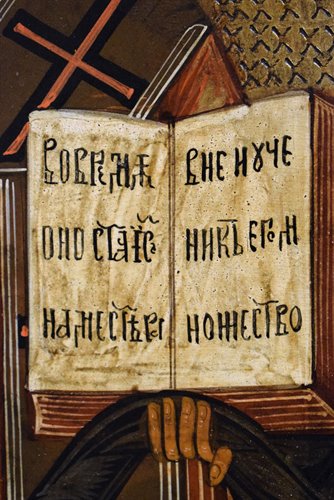 ВОВРЕМѦ
ОНО СТА ІС҃
НАМЕСТѢ РА
ВНЕ И УЧЕ
НИКЪ ЕГО М
НОЖЕСТВО